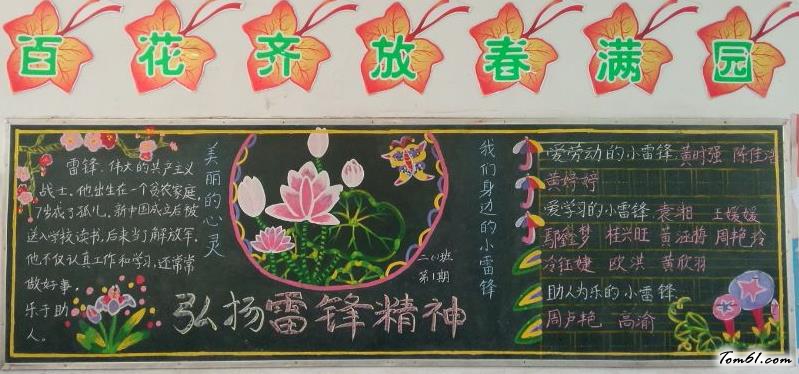 百花齐放春满园
雷锋，伟大的共产主义
战士，他出生在一个贫农家庭，
7岁成了孤儿。新中国成立后被
送入学校读书，后来当了解放军，
他不仅认真工作和学习，还常常
做好事，
乐于助
人。
美丽的心灵
二(1)班
第1期
弘扬雷锋精神
我们身边的小雷锋
爱劳动的小雷锋 黄时强 陈佳浩
黄婷婷
爱学习的小雷锋 袁湘 王媛媛
鄢鑫梦 桂兴旺 黄涵梅 周艳玲
冷钰婕 欧洪 黄欣羽
助人为乐的小雷锋
周卢艳 高渝
Tom61.com